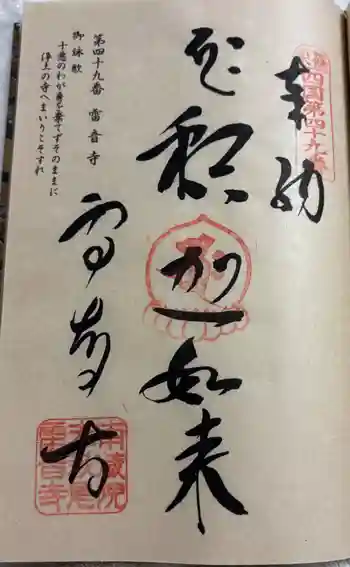 四国第四十九番
奉納
釈迦如来
雷音寺
第四十九番 雷音寺
御詠歌
十悪のわが身を棄てずそのままに
浄土の寺へまいりこそすれ
雷音寺